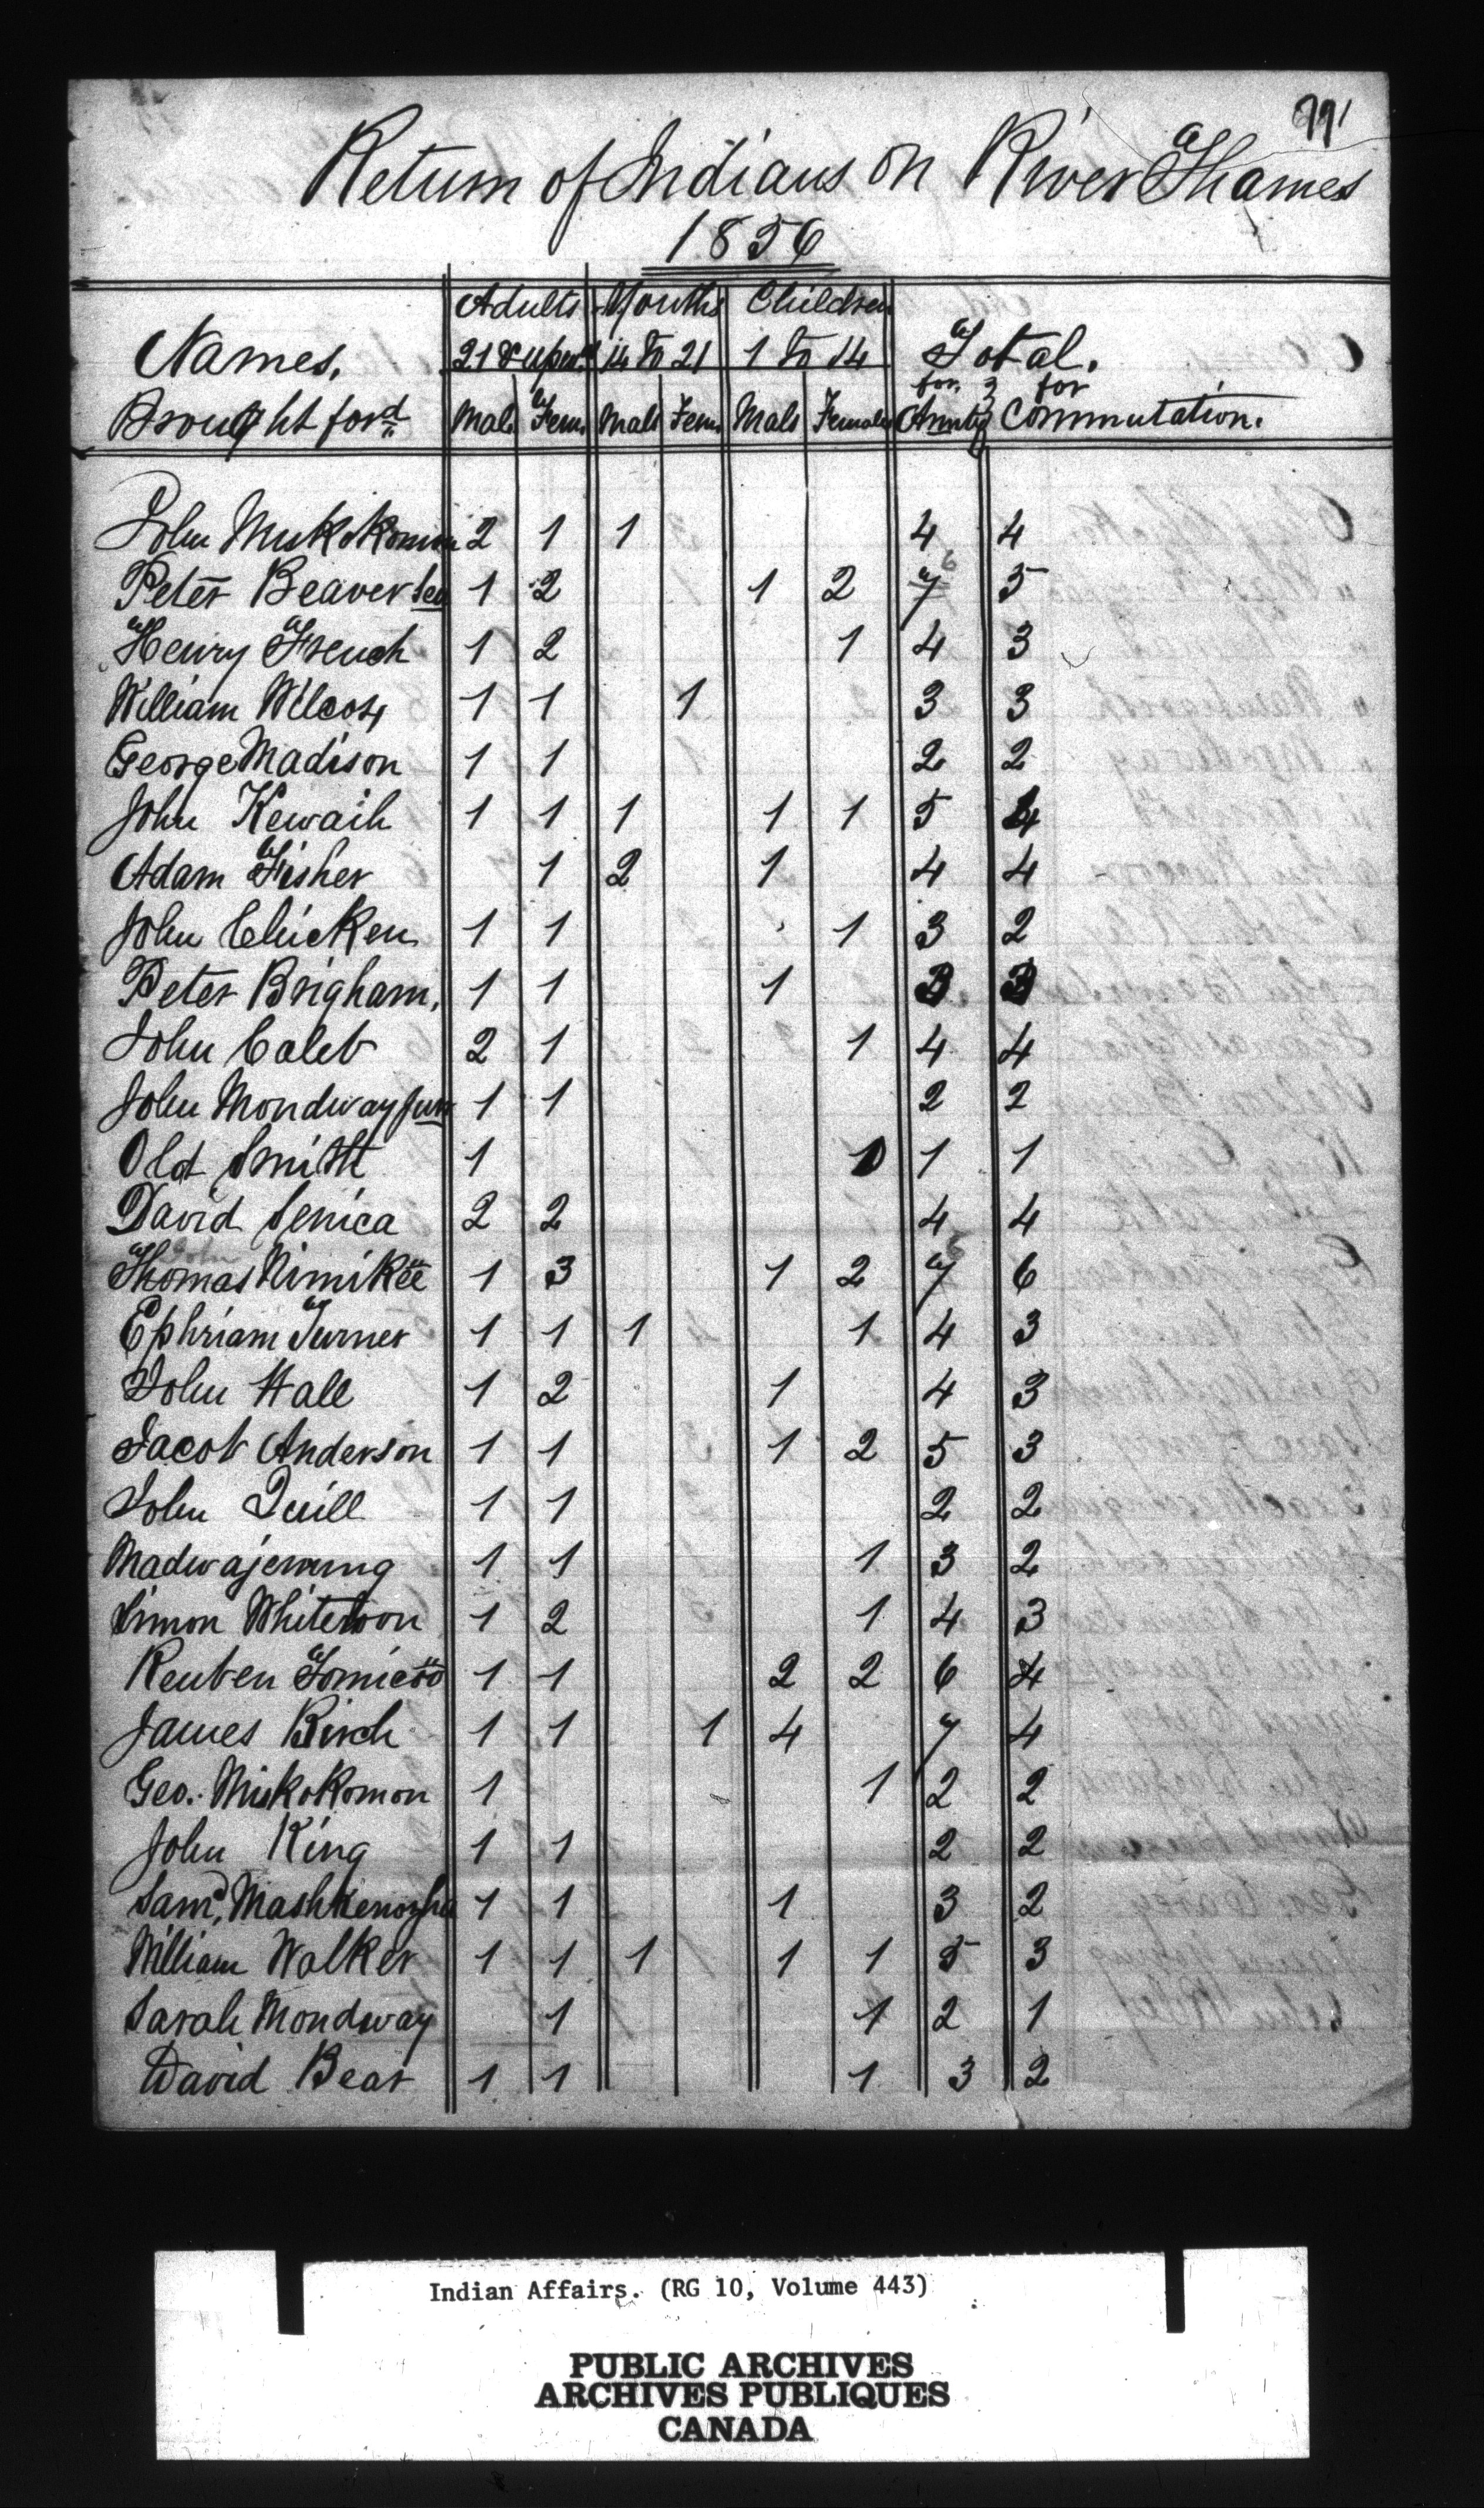 991
Return of Indians on River Thames
1856
Names, Adults Youths Children Total.
21 & upwd 14 to 21 1 to 14 for for
Brought ford Male Fem. Male Fem. Male Females Annty Commutation.
John Muskokomon 2 1 1 4 4
Peter Beaver Sen 1 2 1 2 7 6 5
Henry French 1 2 1 4 3
William Wilcox 1 1 1 3 3
George Madison 1 1 2 2
John Kewaih 1 1 1 1 1 5 4
Adam Fisher 1 2 1 4 4
John Chicken 1 1 1 3 2
Peter Brigham, 1 1 1 3 3
John Caleb 2 1 1 4 4
John Mondway Jun 1 1 2 2
Old Smith 1 1 1
David Senica 2 2 4 4
John
Thomas Nimikee 1 3 1 2 7 6
Ephriam Turner 1 1 1 1 4 3
John Hall 1 2 1 4 3
Jacob Anderson 1 1 1 2 5 3
John Quill 1 1 2 2
Madwajewung 1 1 1 3 2
Simon Whiteloon 1 2 1 4 3
Reuben Tomicoo 1 1 2 2 6 4
James Birch 1 1 1 4 7 4
Geo. Miskokomon 1 1 2 2
John King 1 1 2 2
Saml. 1 1 1 3 2
William Walker 1 1 1 1 1 5 3
Sarah Mondway 1 1 2 1
David Bear 1 1 1 3 2
Indian Affairs. (RG 10, Volume 443)
PUBLIC ARCHIVES
ARCHIVES PUBLIQUES
CANADA